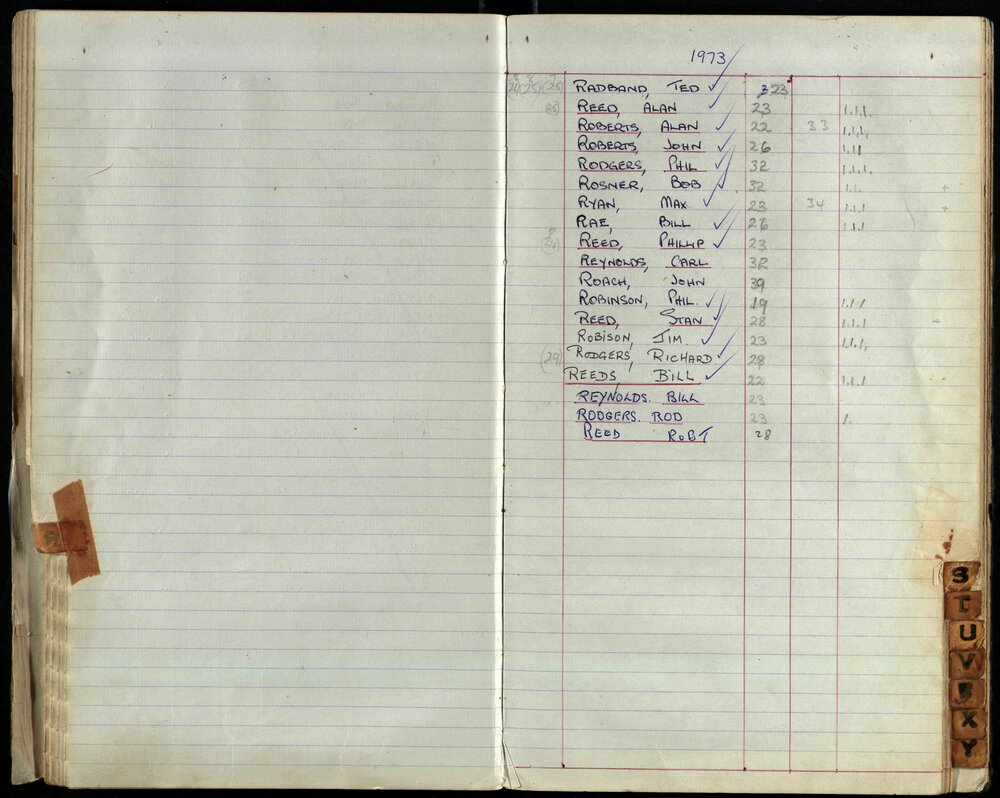 1973
RADBAND, TED 23
(35) REED, ALAN 23 1.1.1.
ROBERTS, ALAN 22 33 1.1.1.
ROBERTS, JOHN 26 1.11
RODGERS, PHIL 32 1.1.1.
ROSNER, BOB 32 1.1. +
RYAN, MAX 23 34 1.1.1 +
RAE, BILL 26 1.1.1
REED, PHILLIP 23
REYNOLDS, CARL 32
ROACH, JOHN 39
ROBINSON, PHIL. 19 1.1.1
REED, STAN 28 1.1.1 +
ROBISON, JIM. 23 1.1.1.
(29) RODGERS, RICHARD. 28
REEDS, BILL 22 1.1.1
REYNOLDS. BILL 23
RODGERS. ROD 23 1.
REED ROBT 28
S
T
U
V
X
Y